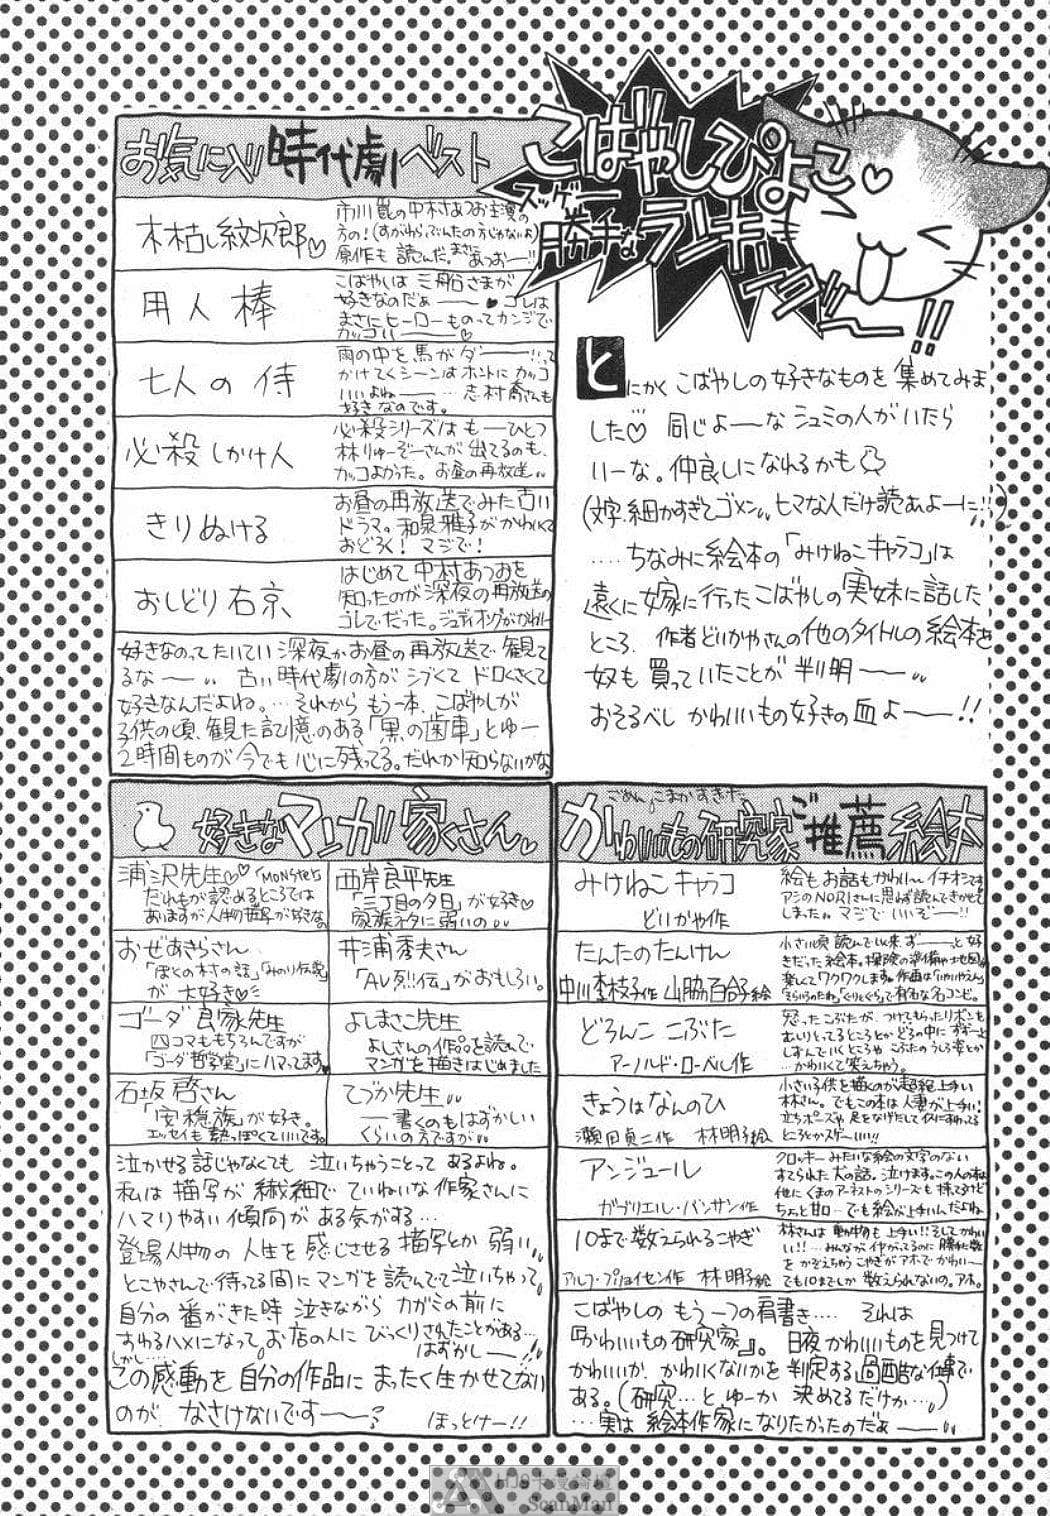 こばやしぴよこ♡
スッゲー
勝手なランキングッ!!
とにかく こばやしの好きなものを 集めてみま
した♡ 同じよーな シュミの人がいたら
いーな。仲良しになれるかも
(文字、細かすぎてゴメン,, ヒマな人だけ読あよーに!!)
‥‥ちなみに絵本の「みけねこキャラコ」は
遠くに嫁に行ったこばやしの実妹に話した
ところ、作者どいかやさんの他のタイトルの絵本を
奴も買っていたことが判明――,,
おそるべし かわいいもの好きの血よ――!!
お気に入り時代劇ベスト
木枯し紋次郎♡
市川崑の中村あつお主演の
方の!(すがわらぶんたの方じゃないよ)
原作も読んだ。まさに
あつおー!!
用人棒
こばやしは 三船さまが
好きなのだぁ――♥コレは
まさにヒーローものってカンジで
カッコいい――♡
七人の侍
雨の中を馬がダ――!!って
かけてくシーンはホントにカッコ
いいよね――‥‥志村喬さんも
好きなのです。
必殺しかけ人
必殺シリーズは もーひとつ
林りゅーぞーさんが出てるのも、
カッコよかった。お昼の再放送,,
きりぬける
お昼の再放送でみた古い
ドラマ。和泉雅子がかわいくて
おどろく! マジで!
おしどり右京
はじめて 中村あつおを
知ったのが深夜の再放送の
コレでだった。ジュディオングがかわい―
好きなのってたいてい 深夜かお昼の再放送で観て
るな――,, 古い時代劇の方がシブくて ドロくさくて
好きなんだよね。‥‥それからもう一本、こばやしが
子供の頃、観た記憶のある「黒の歯車」とゆー
2時間ものが今でも心に残ってる。だれか知らないかな
好きなマンガ家さん。
浦沢先生♡♡「MONSTER」
だれもが認めるところでは
ありますが人物描写が好きな。
西岸良平先生
「三丁目の夕日」が好き♡
家族ネタに弱いの,,
おぜあきらさん
「ぼくの村の話」「みのり伝説」
が 大好き♡
井浦秀夫さん
「AV烈!!伝」がおもしろい。
ゴーダ良家先生
四コマももちろんですが
「ゴーダ哲学堂」にハマってます
よしまさこ先生
よしさんの作品を読んで
マンガを描きはじめました
石坂 啓さん
「安穏族」が好き。
エッセイも熱っぽくていいです。
てづか先生,,
――書くのもはずかしい
くらいの方ですが,,
泣かせる話じゃなくても 泣いちゃうことって あるよね。
私は描写が繊細で ていねいな作家さんに
ハマりやすい傾向がある気がする‥‥
登場人物の人生を感じさせる描写とか弱い,,
とこやさんで待ってる間にマンガを読んでて泣いちゃって
自分の番がきた時 泣きながら カガミの前に
すわるハメになって。お店の人に びっくりされたことがある‥‥
はずかし――!
しかし‥‥
この感動を自分の作品に まったく生かせてない
のが、なさけないです――?
ほっとけー!!
ごめん,こまかすぎた
かわいいもの研究家ご推薦絵本
みけねこ キャラコ
どいかや作
絵もお話もかわい〜イチオシです
アシのNORIさんに思わず読んできかせて
しまった,, マジで いいぞ――!!
たんたのたんけん
中川李枝子作 山脇百合子絵
小さい頃 読んで以来 ず――っと好
きだった絵本。探険の準備や地図が
楽しくてワクワクします。作画は「いやいやえん」
「そらいろのたね」「ぐりとぐら」で有名な名コンビ。
どろんこ こぶた
アーノルド・ローベル作
怒ったこぶたが、つけてもらったリボンも
むしりとってるところとか どろの中にずずーっと
しずんでいくところや こぶたのうしろ姿とか
‥‥かわいくて笑えちゃう。
きょうはなんのひ
瀬田貞二作 林明子絵
小さい子供を描くのが超絶上手い
林さん。でもこの本は人妻が上手い!
アンジュール
ガブリエル・バンサン作
クロッキーみたいな絵の文字のない
すてられた犬の話。泣けます。この人の本は
他に くまのアーネストのシリーズも持ってるけど
ちょっと甘口‥でも絵が上手いんだよね
10まで数えられるこやぎ
アルフ・プリョイセン作 林明子絵
林さんは 動物も上手い!!そしてかわい
い!!‥‥みんなが仲がってるのに勝手に数
をかぞえちゃうこやぎがアホでかわい―
でも10までしか数えられないの。アホ。
こばやしの もう一つの肩書き‥‥ それは
『かわいいもの研究家』。日夜かわいいものを見つけて
かわいいか、かわいくないかを判定する過酷な仕事で
ある。(研究‥‥とゆーか 決めてるだけか‥‥,)
‥‥実は 絵本作家になりたかったのだぁ――,,
ScanMan